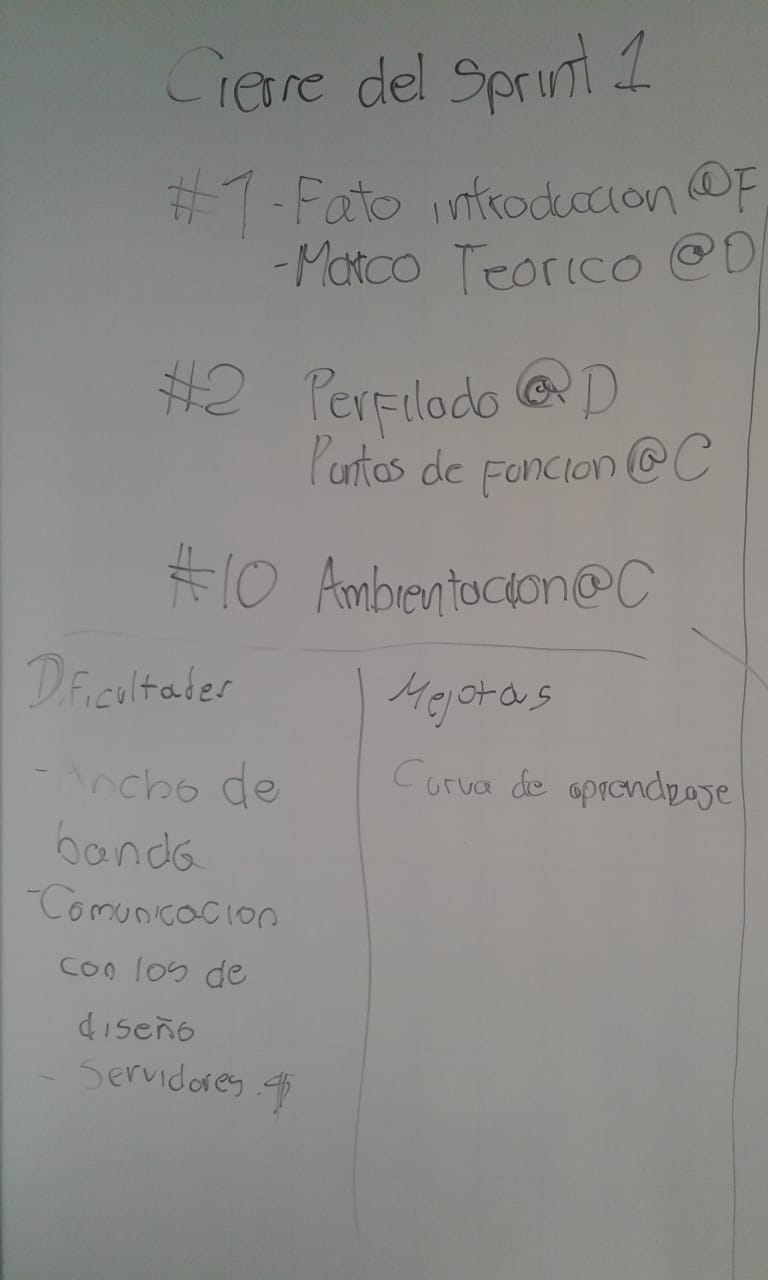 Cierre del Sprint 1
#1 - Fato introduccion @F
- Marco Teorico @D
#2 Perfilado @D
Puntos de Funcion @C
#10 Ambientacion @C
Dificultades
- Ancho de
banda
- Comunicacion
con los de
diseño
- Servidores.
Mejoras
Curva de aprendizaje